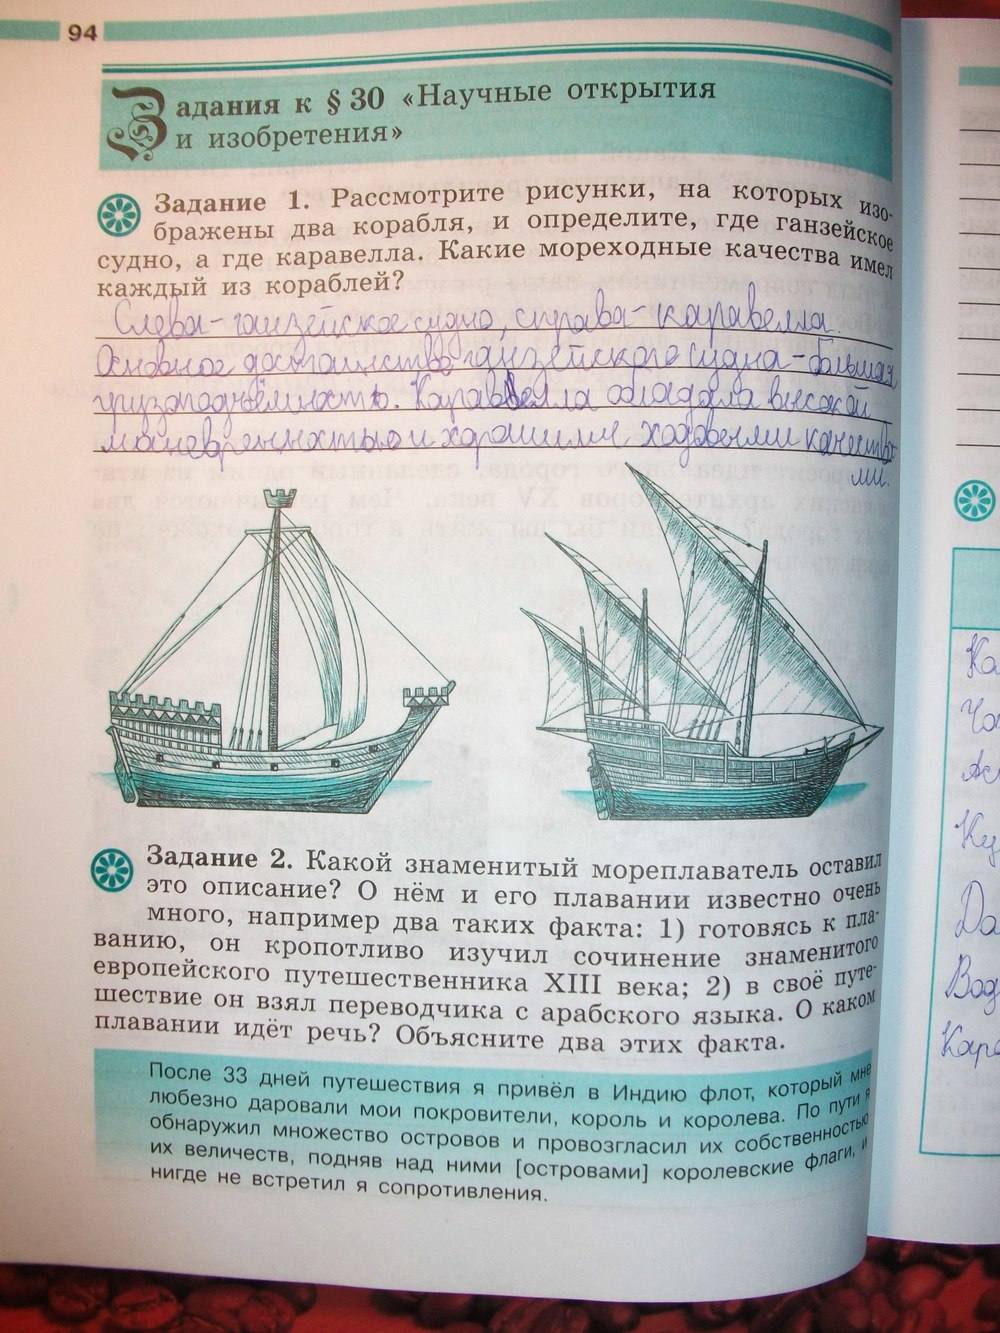 94
Задания к § 30 «Научные открытия
и изобретения»
Задание 1. Рассмотрите рисунки, на которых изо-
бражены два корабля, и определите, где ганзейское
судно, а где каравелла. Какие мореходные качества имел
каждый из кораблей?
Слева-ганзейское судно, справа-каравелла.
Основное достоинство ганзейского судна-большая
грузоподъёмность. Каравелла обладала высокой
маневренностью и хорошими ходовыми качества-
ми.
Задание 2. Какой знаменитый мореплаватель оставил
это описание? О нём и его плавании известно очень
много, например два таких факта: 1) готовясь к пла-
ванию, он кропотливо изучил сочинение знаменитого
европейского путешественника XIII века; 2) в своё путе-
шествие он взял переводчика с арабского языка. О каком
плавании идёт речь? Объясните два этих факта.
После 33 дней путешествия я привёл в Индию флот, который мне
любезно даровали мои покровители, король и королева. По пути я
обнаружил множество островов и провозгласил их собственностью
их величеств, подняв над ними [островами] королевские флаги, и
нигде не встретил я сопротивления.
Ка
Ча
Ку
Да
Вод
Кара